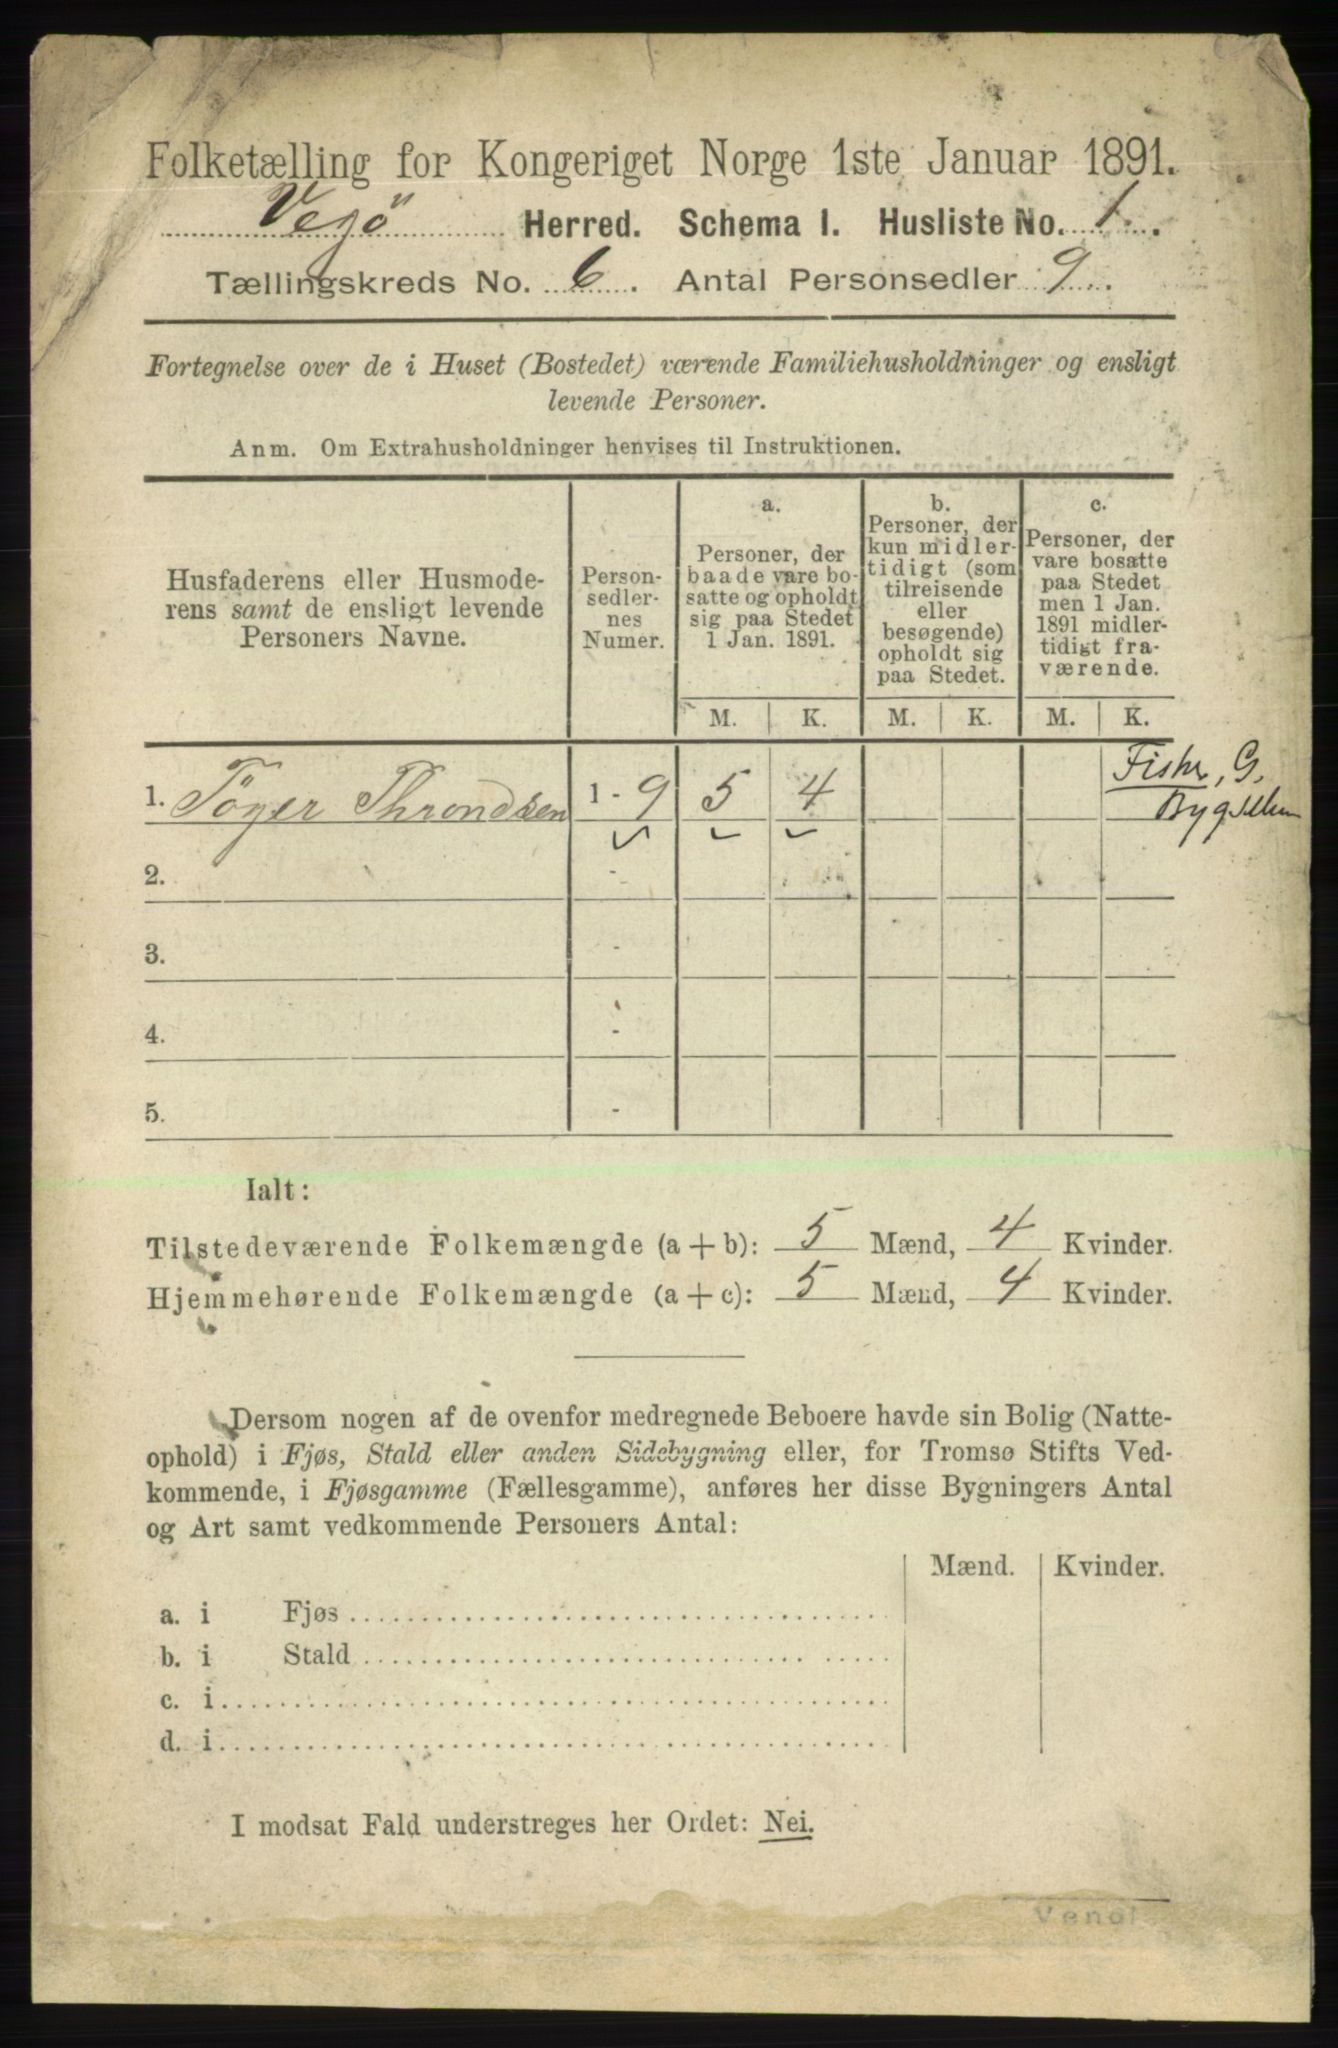 Folketælling for Kongeriget Norge 1ste Januar 1891.
Vejö Herred. Schema I. Husliste No. 1.
Tællingskreds No. 6. Antal Personsedler 9.
Fortegnelse over de i Huset (Bostedet) værende Familiehusholdninger og ensligt
levende Personer.
Anm. Om Extrahusholdninger henvises til Instruktionen.
Husfaderens eller Husmode-
rens samt de ensligt levende
Personers Navne.
Person-
sedler-
nes
Numer.
a.
Personer, der
baade vare bo-
satte og opholdt
sig paa Stedet
1 Jan. 1891.
b.
Personer, der
kun midler-
tidigt (som
tilreisende
eller
besøgende)
opholdt sig
paa Stedet.
c.
Personer, der
vare bosatte
paa Stedet
men 1 Jan.
1891 midler-
tidigt fra-
værende.
M. K. M. K. M. K.
1. Töger Throndsen 1 - 9 5 4
Fisker, G.
2. -
3. -
4. -
5. -
Ialt:
Tilstedeværende Folkemængde (a + b): 5 Mænd, 4 Kvinder.
Hjemmehørende Folkemængde (a + c): 5 Mænd, 4 Kvinder.
Dersom nogen af de ovenfor medregnede Beboere havde sin Bolig (Natte-
ophold) i Fjøs, Stald eller anden Sidebygning eller, for Tromsø Stifts Ved-
kommende, i Fjøsgamme (Fællesgamme), anføres her disse Bygningers Antal
og Art samt vedkommende Personers Antal:
Mænd. Kvinder.
a. i Fjøs
b. i Stald
c. i
d. i
I modsat Fald understreges her Ordet: Nei.